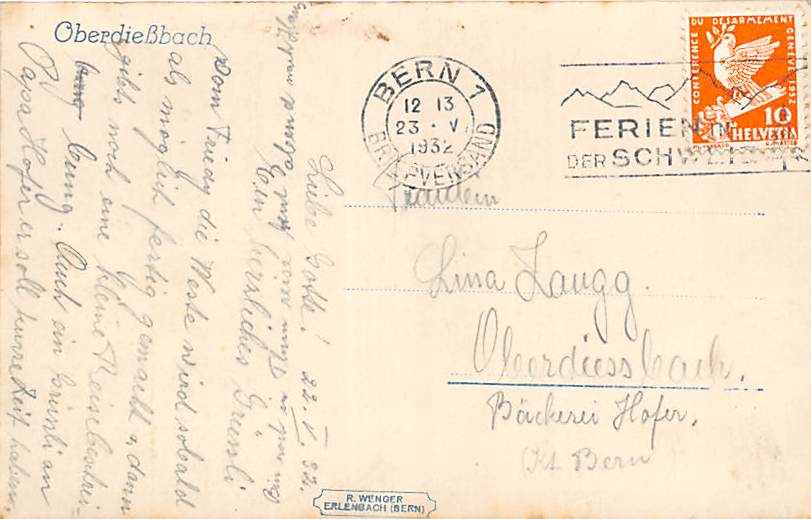 Oberdießbach
BERN 1
12 13
23. V.
1932
BRIEFVERSAND
CONFERENCE DU DESARMEMENT GENEVE 1932
10
HELVETIA
FERIEN IN
DER SCHWEIZ
Fräulein
Lina Zaugg.
Oberdiessbach.
Bäckerei Hofer,
(Kt. Bern
Liebe Gotte! 22. V. 32.
Ein herzliches Grüessli
vom Trudy die Weste wird sobald
als möglich fertig gemacht u. dann
gibts noch eine kleine Reisebeschrei-
bung. Auch ein Grüessli an
Papa Hofer er soll kurze Zeit haben.
R. WENGER
ERLENBACH (BERN)